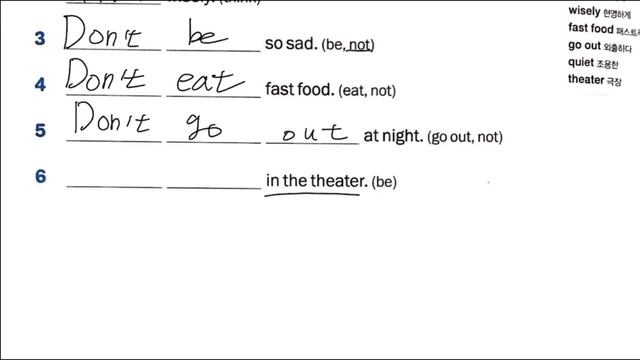 3 Don't be so sad. (be, not)
4 Don't eat fast food. (eat, not)
5 Don't go out at night. (go out, not)
6 in the theater. (be)
wisely 현명하게
fast food
go out 외출하다
quiet 조용한
theater 극장